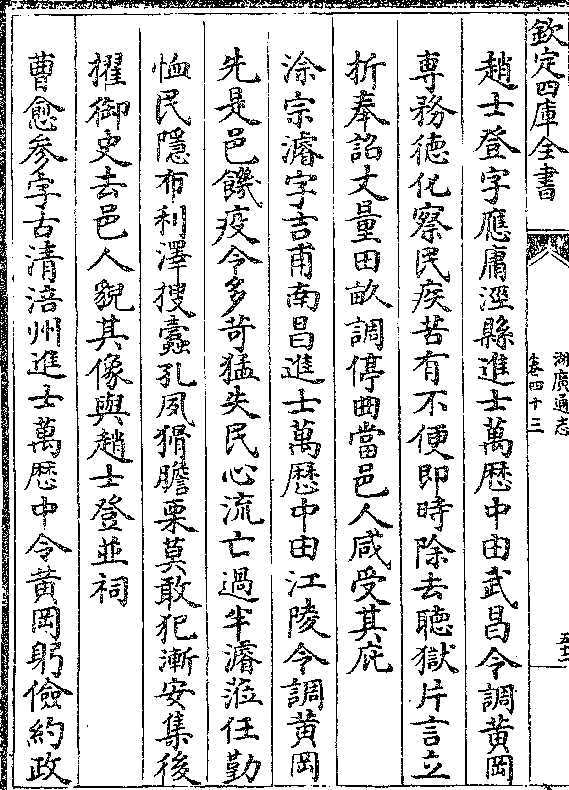 欽定四庫全書
湖廣通志
卷四十三
趙士登字應庸涇縣進士萬歷中由武昌令調黃岡
專務徳化察民疾苦有不便即時除去聽獄片言立
折奉詔丈量田畝調停曲當邑人咸受其庇
涂宗濬字言甫南昌進士萬歷中由江陵令調黃岡
先是邑饑疫令多苛猛失民心流亡過半濬蒞任勤
恤民隱布利澤搜蠹孔夙猾膽栗莫敢犯漸安集後
擢御史去邑人貌其像與趙士登並祠
曹愈參字古清涪州進士萬歷中令黃岡躬儉約政